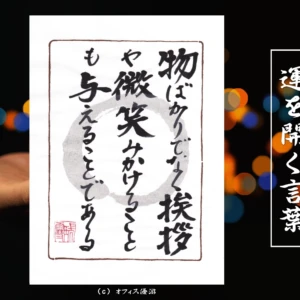 運を開く言葉
物ばかりでなく挨拶
や微笑みかけること
も与えることである
(c) オフィス